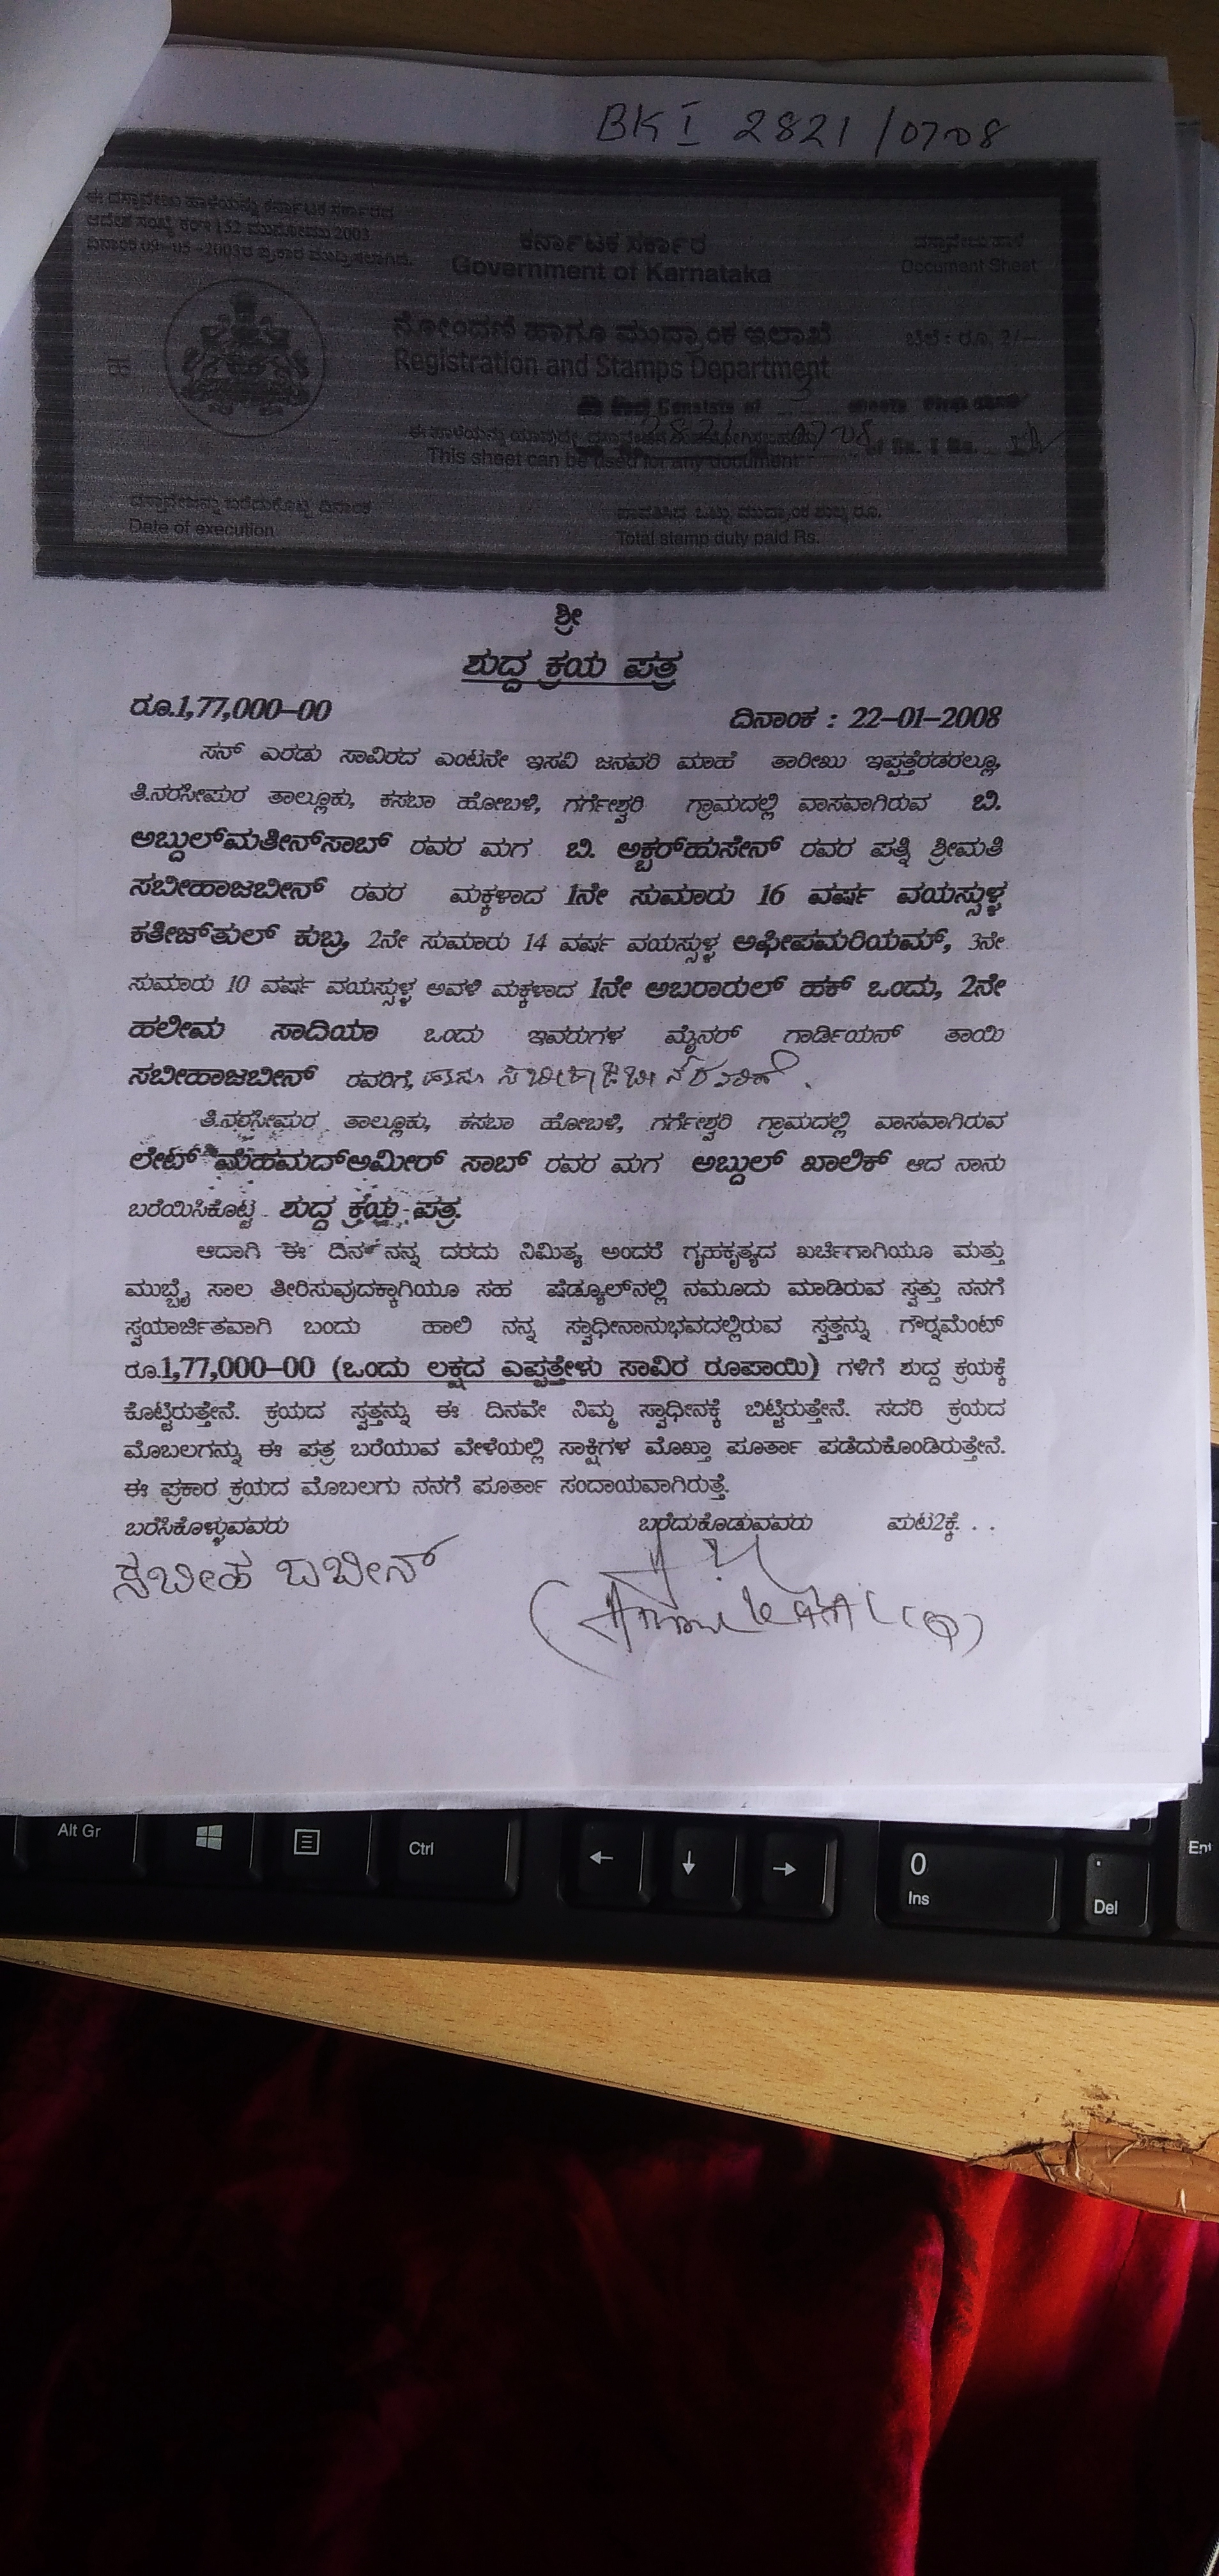 BK I 2821 /07-08
ಈ ದಸ್ತಾವೇಜು ಹಾಳೆಯನ್ನು ಕರ್ನಾಟಕ ಸರ್ಕಾರದ
ಆದೇಶ ಸಂಖ್ಯೆ ಕಂಇ 152 ಮುನೋಮು 2003
ದಿನಾಂಕ 09-05-2003ರ ಪ್ರಕಾರ ಮುದ್ರಿಸಲಾಗಿದೆ.
ಕರ್ನಾಟಕ ಸರ್ಕಾರ
Government of Karnataka
ದಸ್ತಾವೇಜು ಹಾಳೆ
Document Sheet
ನೋಂದಣಿ ಹಾಗೂ ಮುದ್ರಾಂಕ ಇಲಾಖೆ
Registration and Stamps Department
ಬೆಲೆ : ರೂ. 2/-
Consists of 3 sheets
ಈ ಹಾಳೆಯನ್ನು ಯಾವುದೇ ದಸ್ತಾವೇಜಿಗೆ ಉಪಯೋಗಿಸಬಹುದು
This sheet can be used for any document
ದಸ್ತಾವೇಜನ್ನು ಬರೆದುಕೊಟ್ಟ ದಿನಾಂಕ
Date of execution
ಪಾವತಿಸಿದ ಒಟ್ಟು ಮುದ್ರಾಂಕ ಶುಲ್ಕ ರೂ.
Total stamp duty paid Rs.
ಶ್ರೀ
ಶುದ್ಧ ಕ್ರಯ ಪತ್ರ
ರೂ.1,77,000–00 ದಿನಾಂಕ : 22–01–2008
ಸನ್ ಎರಡು ಸಾವಿರದ ಎಂಟನೇ ಇಸವಿ ಜನವರಿ ಮಾಹೆ ತಾರೀಖು ಇಪ್ಪತ್ತೆರಡರಲ್ಲೂ,
ತಿ.ನರಸೀಪುರ ತಾಲ್ಲೂಕು, ಕಸಬಾ ಹೋಬಳಿ, ಗರ್ಗೇಶ್ವರಿ ಗ್ರಾಮದಲ್ಲಿ ವಾಸವಾಗಿರುವ ಬಿ.
ಅಬ್ದುಲ್‌ಮತೀನ್‌ಸಾಬ್ ರವರ ಮಗ ಬಿ. ಅಕ್ಬರ್‌ಹುಸೇನ್ ರವರ ಪತ್ನಿ ಶ್ರೀಮತಿ
ಸಬೀಹಾಜಬೀನ್ ರವರ ಮಕ್ಕಳಾದ 1ನೇ ಸುಮಾರು 16 ವರ್ಷ ವಯಸ್ಸುಳ್ಳ
ಕತೀಜ್‌ತುಲ್ ಕುಬ್ರ, 2ನೇ ಸುಮಾರು 14 ವರ್ಷ ವಯಸ್ಸುಳ್ಳ ಅಫೀಪಮರಿಯಮ್, 3ನೇ
ಸುಮಾರು 10 ವರ್ಷ ವಯಸ್ಸುಳ್ಳ ಅವಳಿ ಮಕ್ಕಳಾದ 1ನೇ ಅಬರಾರುಲ್ ಹಕ್ ಒಂದು, 2ನೇ
ಹಲೀಮ ಸಾದಿಯಾ ಒಂದು ಇವರುಗಳ ಮೈನರ್ ಗಾರ್ಡಿಯನ್ ತಾಯಿ
ಸಬೀಹಾಜಬೀನ್ ರವರಿಗೆ,
ತಿ.ನರಸೀಪುರ ತಾಲ್ಲೂಕು, ಕಸಬಾ ಹೋಬಳಿ, ಗರ್ಗೇಶ್ವರಿ ಗ್ರಾಮದಲ್ಲಿ ವಾಸವಾಗಿರುವ
ಲೇಟ್ ಮಹಮದ್‌ಅಮೀರ್ ಸಾಬ್ ರವರ ಮಗ ಅಬ್ದುಲ್ ಖಾಲಿಕ್ ಆದ ನಾನು
ಬರೆಯಿಸಿಕೊಟ್ಟ ಶುದ್ಧ ಕ್ರಯ ಪತ್ರ.
ಆದಾಗಿ ಈ ದಿನ ನನ್ನ ದರದು ನಿಮಿತ್ಯ ಅಂದರೆ ಗೃಹಕೃತ್ಯದ ಖರ್ಚಿಗಾಗಿಯೂ ಮತ್ತು
ಮುಬ್ಬೈ ಸಾಲ ತೀರಿಸುವುದಕ್ಕಾಗಿಯೂ ಸಹ ಷೆಡ್ಯೂಲ್‌ನಲ್ಲಿ ನಮೂದು ಮಾಡಿರುವ ಸ್ವತ್ತು ನನಗೆ
ಸ್ವಯಾರ್ಜಿತವಾಗಿ ಬಂದು ಹಾಲಿ ನನ್ನ ಸ್ವಾಧೀನಾನುಭವದಲ್ಲಿರುವ ಸ್ವತ್ತನ್ನು ಗೌರ್‍ನಮೆಂಟ್
ರೂ.1,77,000–00 (ಒಂದು ಲಕ್ಷದ ಎಪ್ಪತ್ತೇಳು ಸಾವಿರ ರೂಪಾಯಿ) ಗಳಿಗೆ ಶುದ್ಧ ಕ್ರಯಕ್ಕೆ
ಕೊಟ್ಟಿರುತ್ತೇನೆ. ಕ್ರಯದ ಸ್ವತ್ತನ್ನು ಈ ದಿನವೇ ನಿಮ್ಮ ಸ್ವಾಧೀನಕ್ಕೆ ಬಿಟ್ಟಿರುತ್ತೇನೆ. ಸದರಿ ಕ್ರಯದ
ಮೊಬಲಗನ್ನು ಈ ಪತ್ರ ಬರೆಯುವ ವೇಳೆಯಲ್ಲಿ ಸಾಕ್ಷಿಗಳ ಮೊಖ್ತಾ ಪೂರ್ತಾ ಪಡೆದುಕೊಂಡಿರುತ್ತೇನೆ.
ಈ ಪ್ರಕಾರ ಕ್ರಯದ ಮೊಬಲಗು ನನಗೆ ಪೂರ್ತಾ ಸಂದಾಯವಾಗಿರುತ್ತೆ.
ಬರೆಸಿಕೊಳ್ಳುವವರು ಬರೆದುಕೊಡುವವರು ಪುಟ2ಕ್ಕೆ. . .
ಸಬೀಹ ಜಬೀನ್
Alt Gr
Ctrl
0
Ins
.
Del